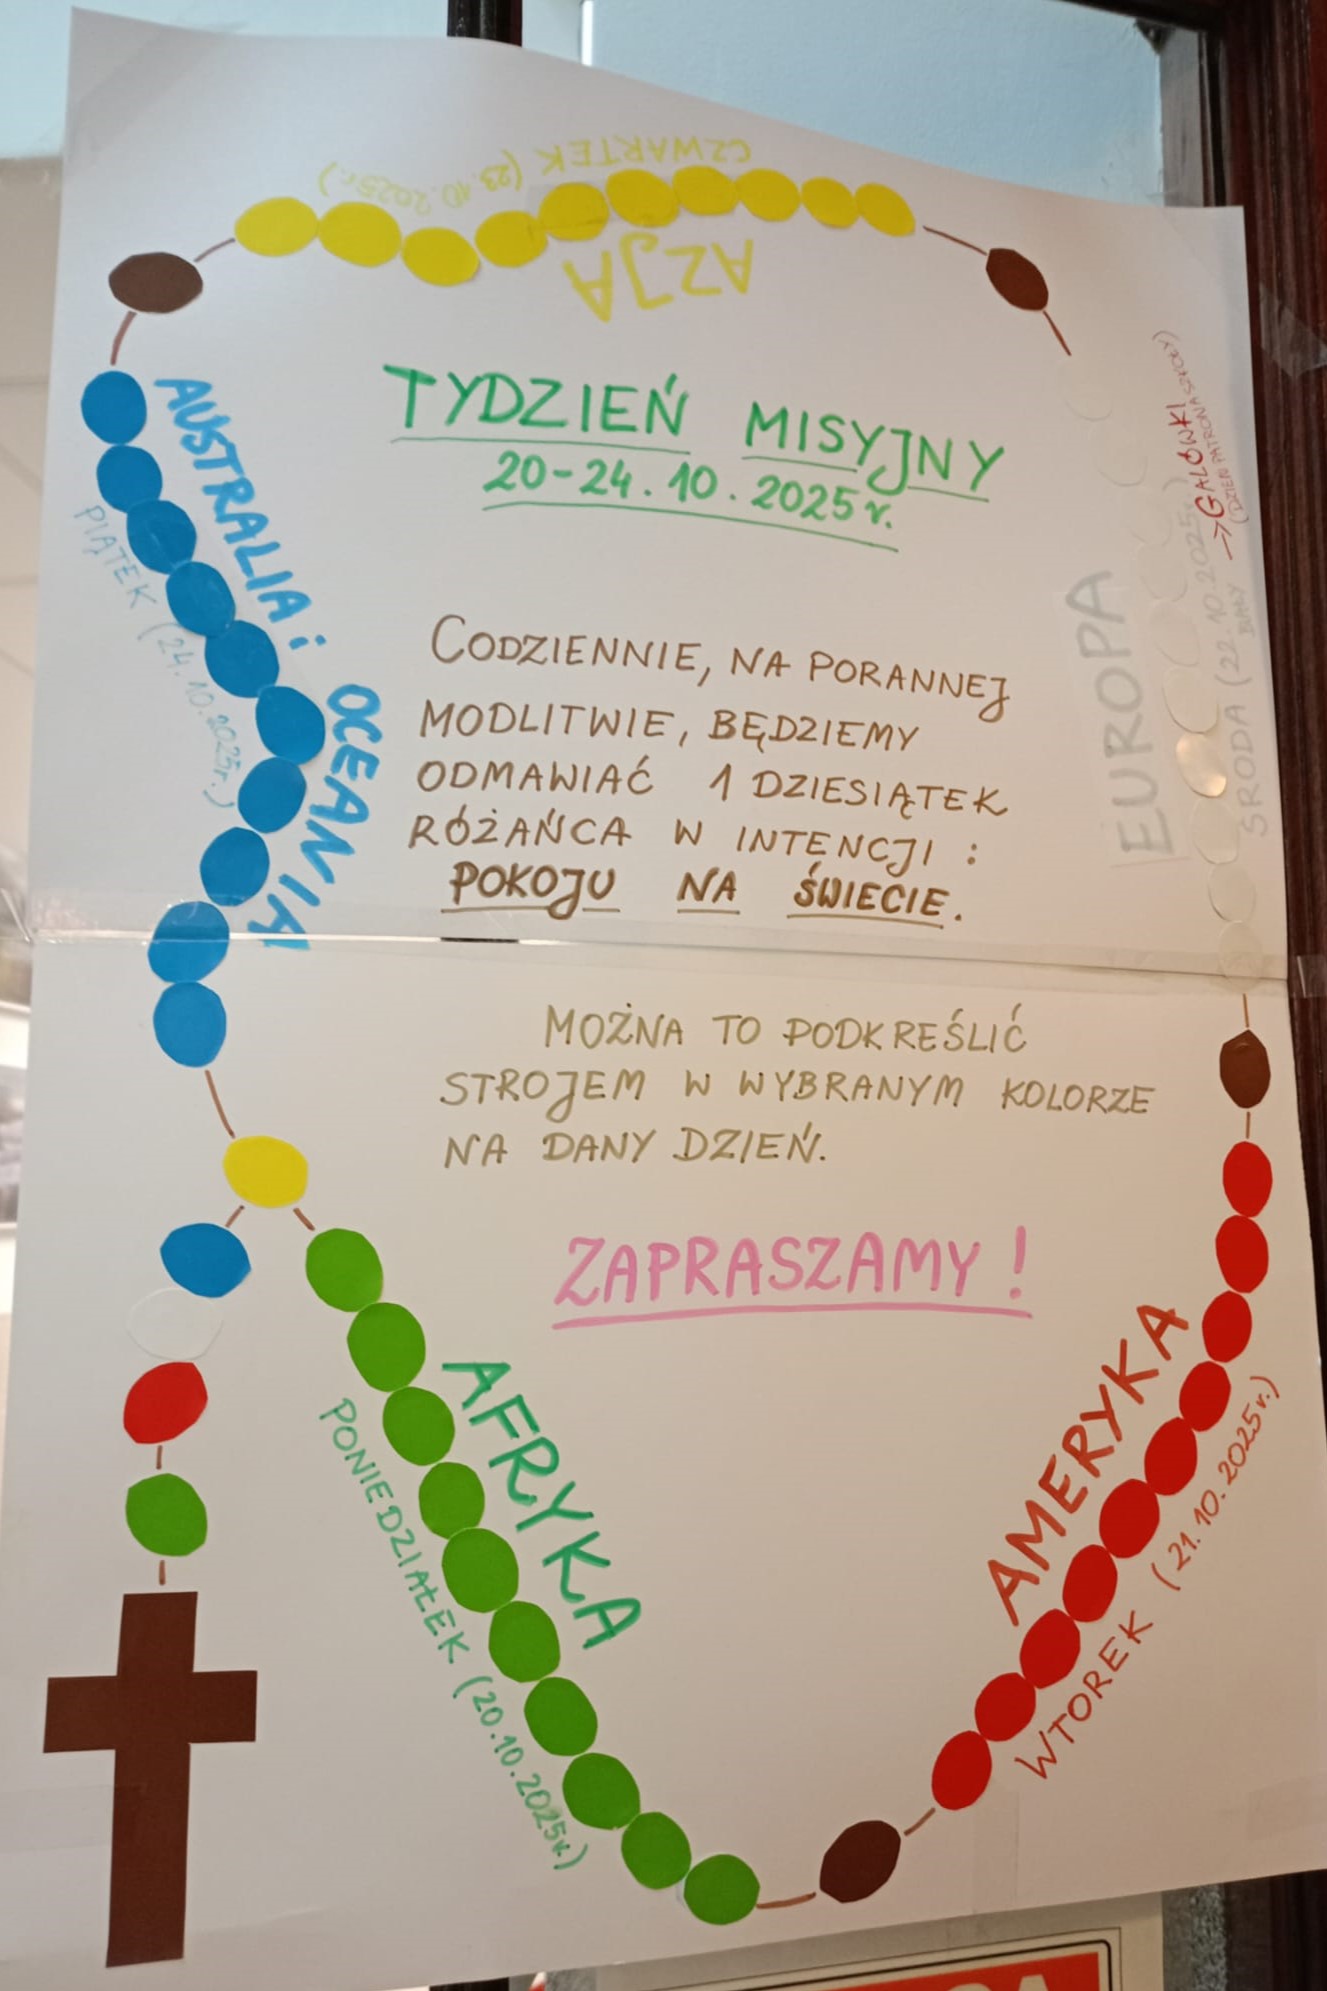 CZWARTEK (23.10.2025r.)
AZJA
TYDZIEŃ MISYJNY
20-24.10.2025r.
AUSTRALIA i OCEANIA
PIĄTEK (24.10.2025r.)
CODZIENNIE, NA PORANNEJ
MODLITWIE, BĘDZIEMY
ODMAWIAĆ 1 DZIESIĄTEK
RÓŻAŃCA W INTENCJI:
POKOJU NA ŚWIECIE.
EUROPA
ŚRODA (22.10.2025r.)
BIAŁY → GALÓWKI
(DZIEŃ PATRONA SZKOŁY)
MOŻNA TO PODKREŚLIĆ
STROJEM W WYBRANYM KOLORZE
NA DANY DZIEŃ.
ZAPRASZAMY!
AFRYKA
PONIEDZIAŁEK (20.10.2025r.)
AMERYKA
WTOREK (21.10.2025r.)